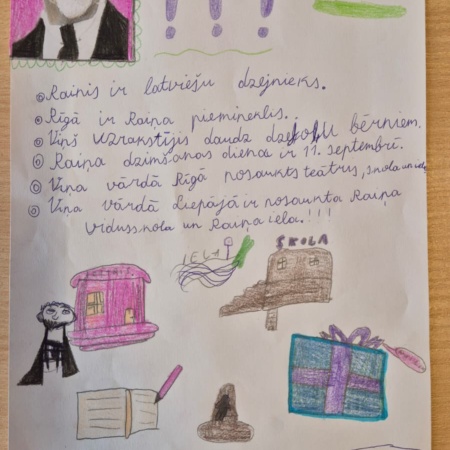 !!!
Rainis ir latviešu dzejnieks.
Rīgā ir Raiņa piemineklis.
Viņš uzrakstījis daudz dzejoļu bērniem.
Raiņa dzimšanas diena ir 11. septembrī.
Viņa vārdā Rīgā nosaukts teātris, skola un iela.
Viņa vārdā Liepājā ir nosaukta Raiņa
vidusskola un Raiņa iela.!!!
IELA
SKOLA